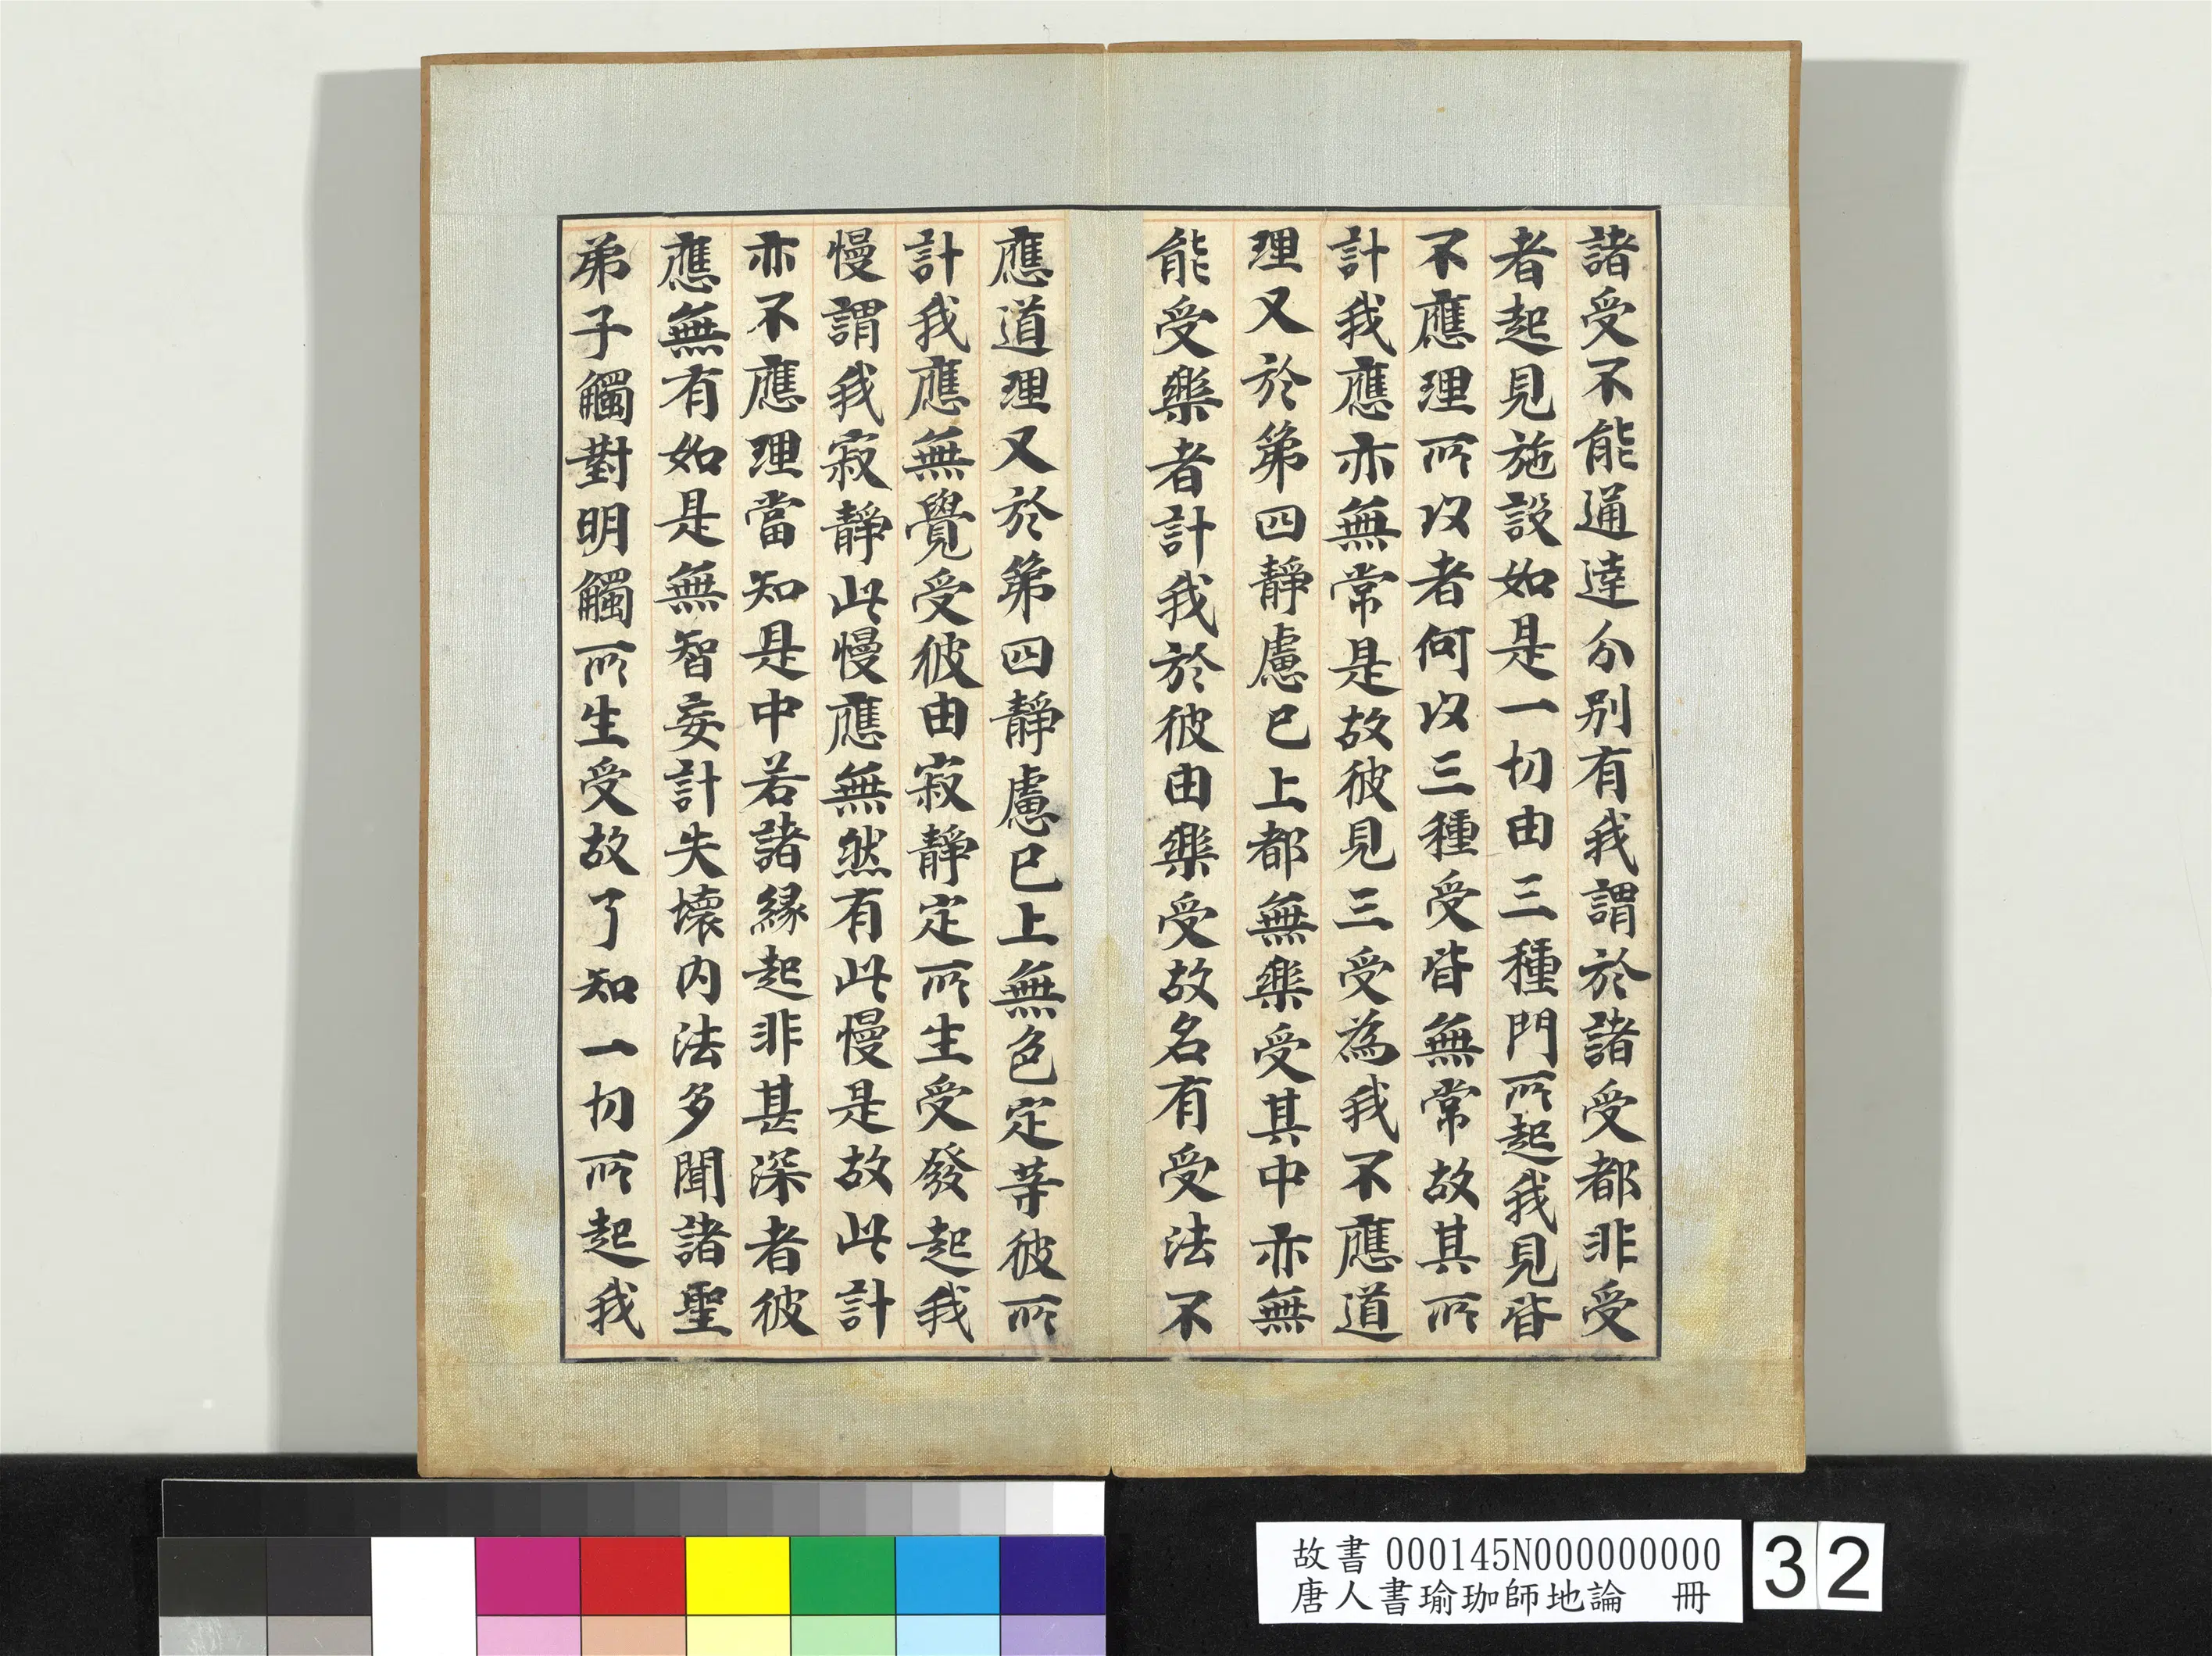 諸受不能通達分別有我謂於諸受都非受
者起見施設如是一切由三種門所起我見皆
不應理所以者何以三種受皆無常故其所
計我應亦無常是故彼見三受為我不應道
理又於第四靜慮已上都無樂受其中亦無
能受樂者計我於彼由樂受故名有受法不
應道理又於第四靜慮已上無色定等彼所
計我應無覺受彼由寂靜定所生受發起我
慢謂我寂靜此慢應無然有此慢是故此計
亦不應理當知是中若諸緣起非甚深者彼
應無有如是無智妄計失壞內法多聞諸聖
弟子觸對明觸所生受故了知一切所起我
故書 000145N000000000
唐人書瑜珈師地論 冊
32